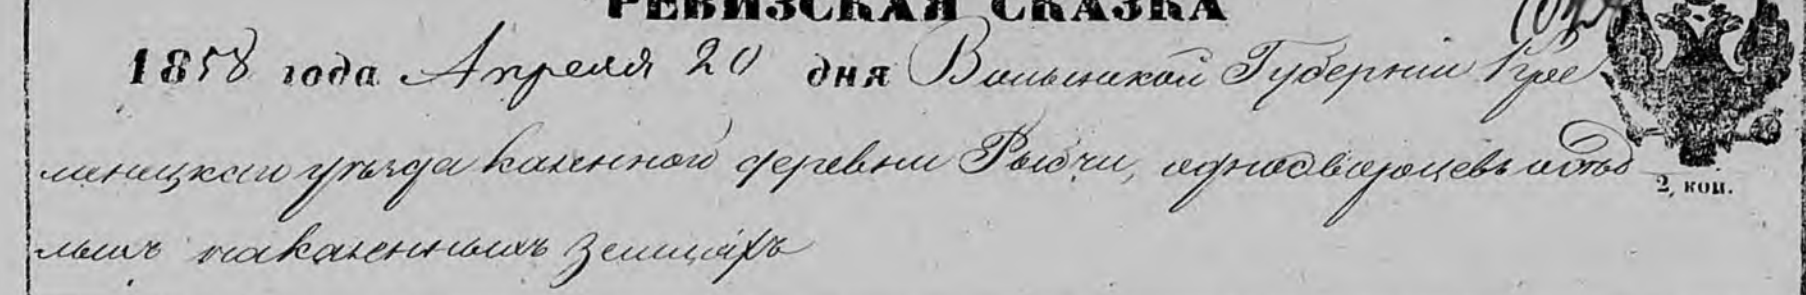 РЕВИЗСКАЯ СКАЗКА
1858 года Апреля 20 дня Волынской Губернiи Кре
менецкаго уѣзда казенной деревни Рыдчи, однодворцевъ осѣд
лыхъ на казенныхъ земляхъ
2, коп.